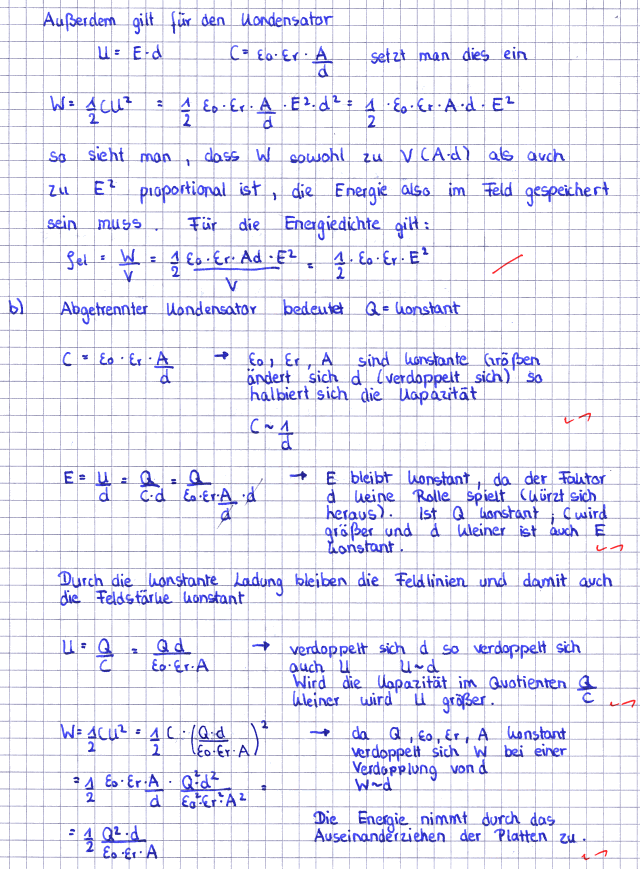 Außerdem gilt für den Kondensator
U = E·d   C = ε₀·εr·A/d   setzt man dies ein
W = 1/2 CU² = 1/2 ε₀·εr·A/d·E²·d² = 1/2·ε₀·εr·A·d·E²
so sieht man, dass W sowohl zu V(A·d) als auch
zu E² proportional ist, die Energie also im Feld gespeichert
sein muss. Für die Energiedichte gilt:
ρel = W/V = 1/2 ε₀·εr·Ad·E²/V = 1/2·ε₀·εr·E²
b) Abgetrennter Kondensator bedeutet Q = konstant
C = ε₀·εr·A/d → ε₀, εr, A sind konstante Größen
ändert sich d (verdoppelt sich) so
halbiert sich die Kapazität
C ~ 1/d
E = U/d = Q/(C·d) = Q/(ε₀·εr·A/d·d) → E bleibt konstant, da der Faktor
d keine Rolle spielt (kürzt sich
heraus). Ist Q konstant, C wird
größer und d kleiner ist auch E
konstant.
Durch die konstante Ladung bleiben die Feldlinien und damit auch
die Feldstärke konstant
U = Q/C = Qd/(ε₀·εr·A) → verdoppelt sich d so verdoppelt sich
auch U   U~d
Wird die Kapazität im Quotienten Q/C
kleiner wird U größer.
W = 1/2 CU² = 1/2 C·(Q·d/(ε₀·εr·A))² → da Q, ε₀, εr, A konstant
verdoppelt sich W bei einer
Verdopplung von d
W~d
= 1/2 ε₀·εr·A/d · Q²·d²/(ε₀²·εr²·A²) =
= 1/2 Q²·d/(ε₀·εr·A)
Die Energie nimmt durch das
Auseinanderziehen der Platten zu.